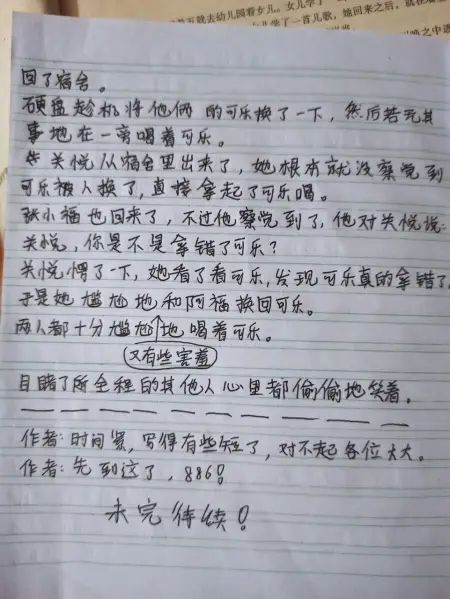 五就去幼儿园看女儿。女儿学
了一首儿歌，她回来之后，就在墙
回了宿舍。
硬盘趁机将他俩的可乐换了一下，然后若无其
事地在一旁喝着可乐。
关悦从宿舍里出来了，她根本就没察觉到
可乐被人换了，直接拿起了可乐喝。
张小福也回来了，不过他察觉到了，他对关悦说：
关悦，你是不是拿错了可乐？
关悦愣了一下，她看了看可乐，发现可乐真的拿错了
于是她尴尬地和阿福换回可乐。
两人都十分尴尬地喝着可乐。
又有些害羞
目睹了所全程的其他人心里都偷偷地笑着。
作者：时间紧，写得有些短了，对不起各位大大。
作者：先到这了，886！
未完待续！